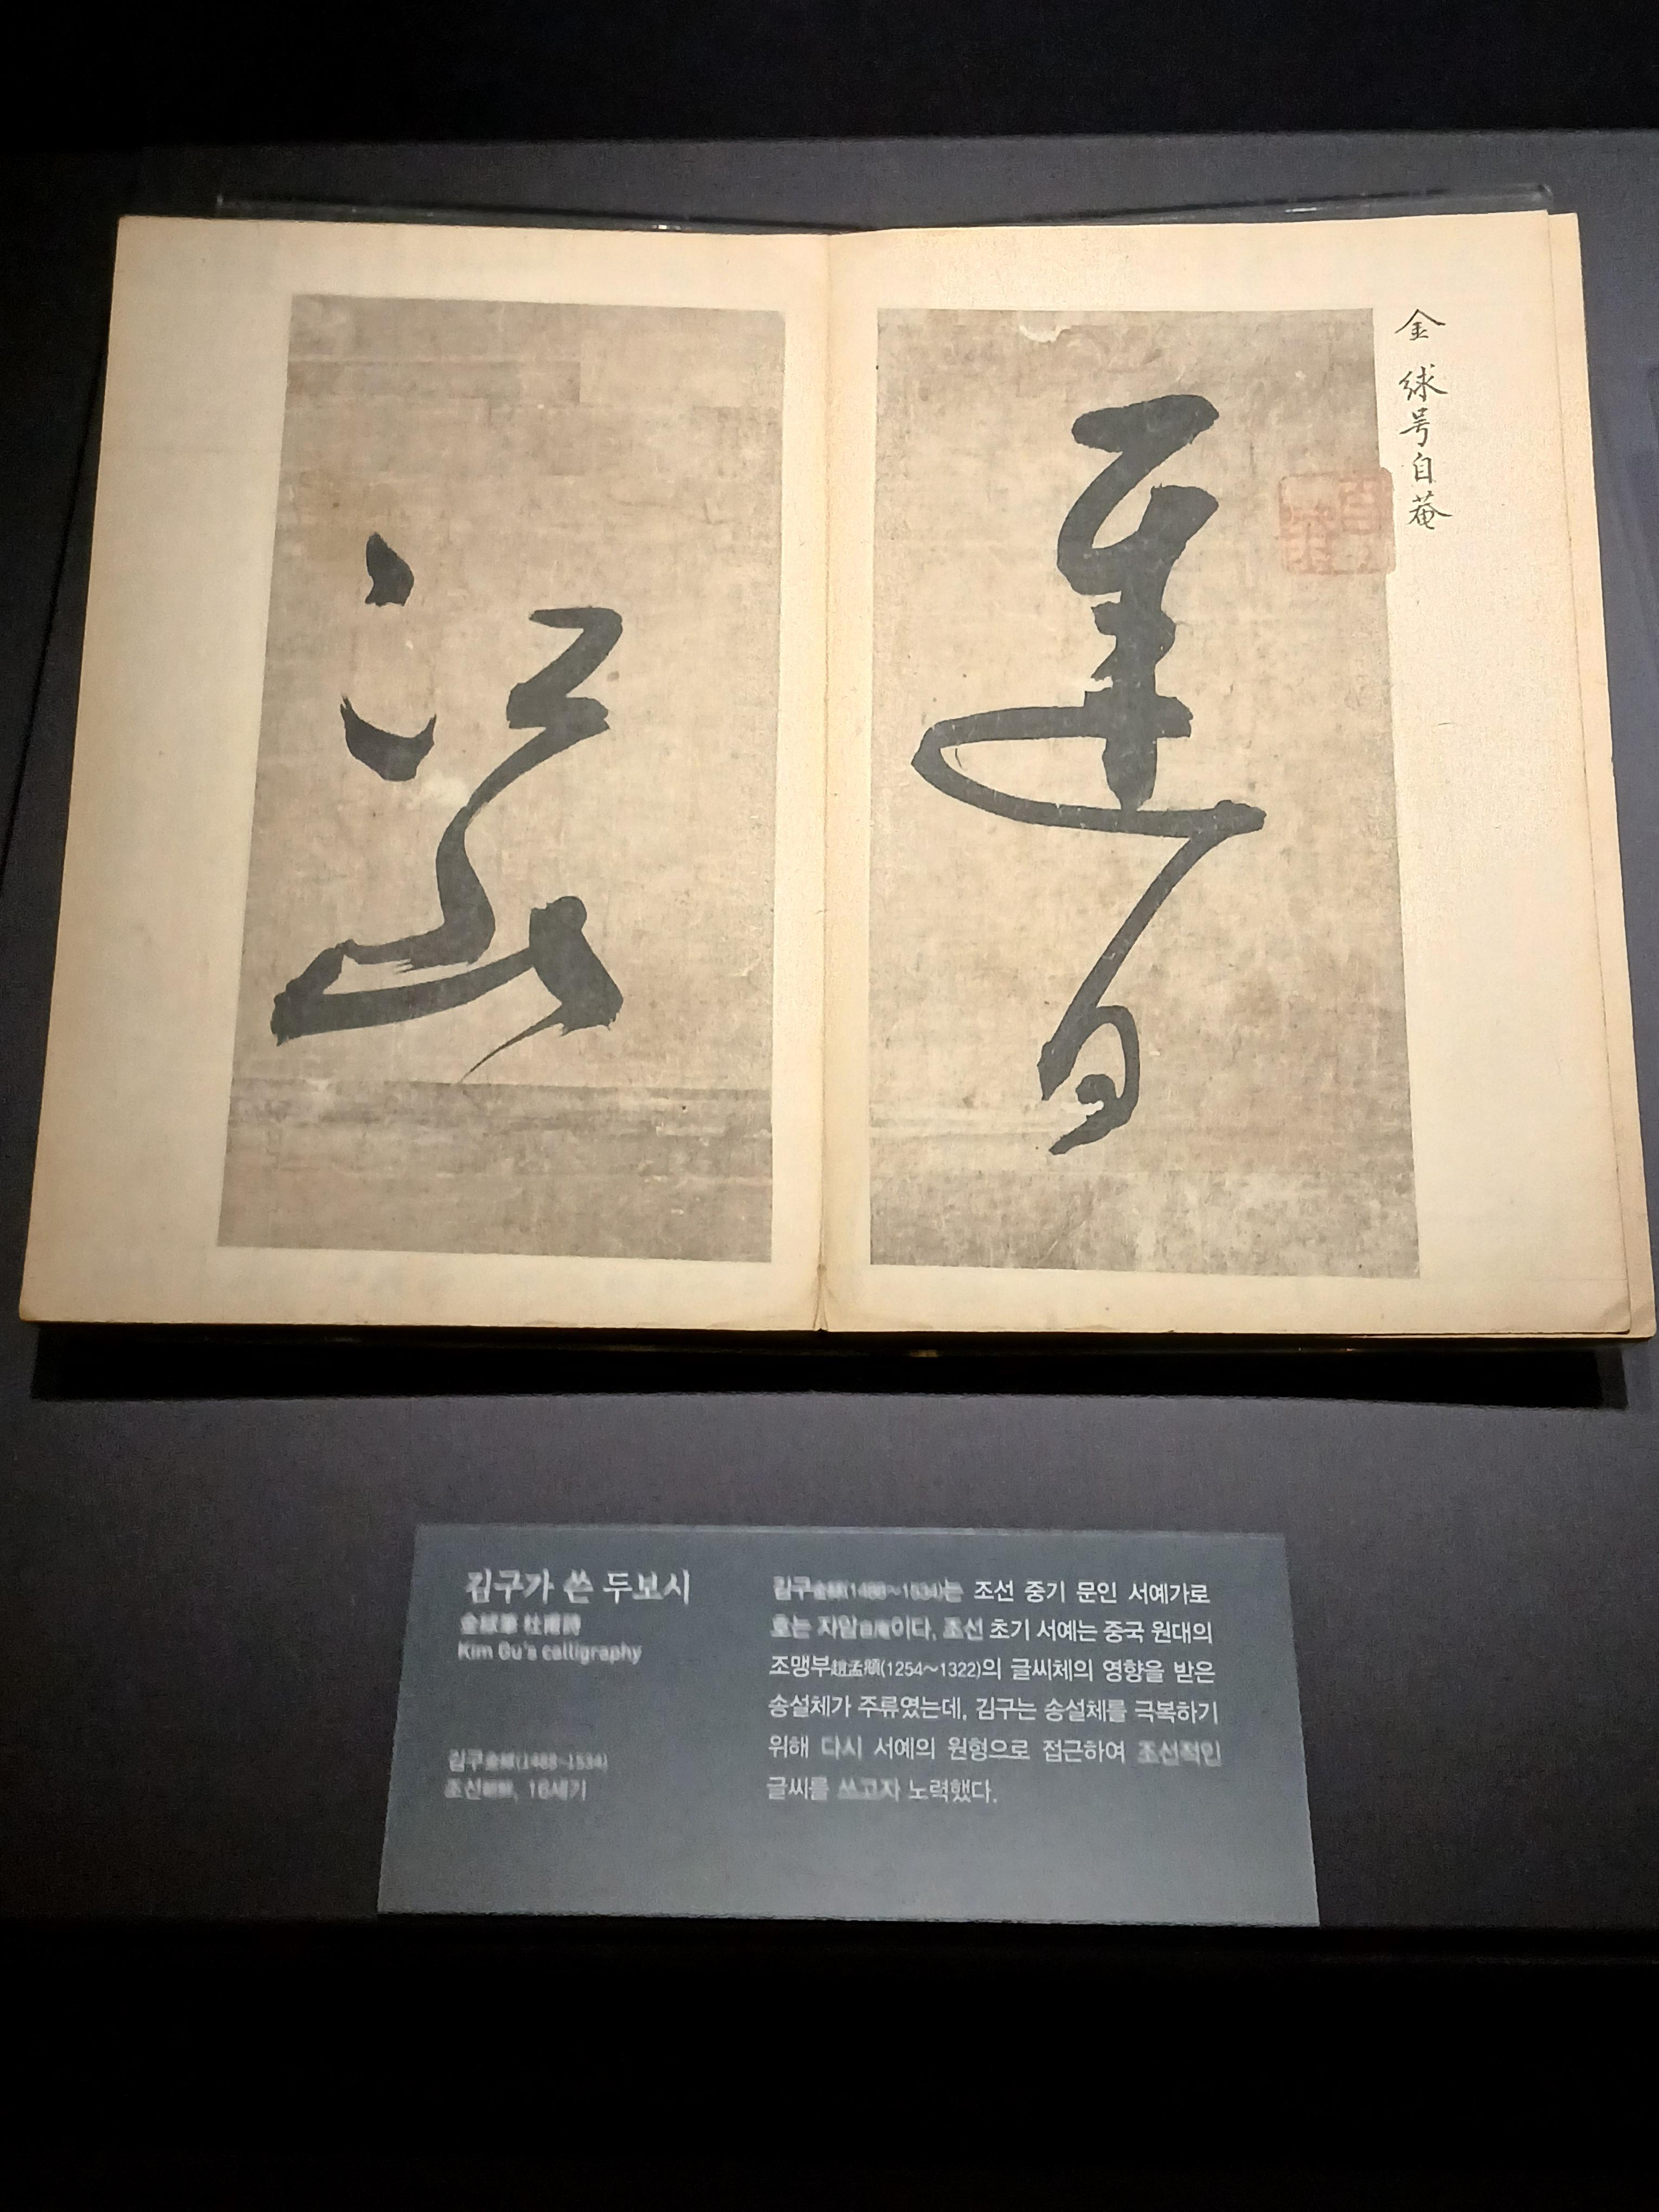 金絿号自菴
遲日
江山
김구가 쓴 두보시
金絿筆 杜甫詩
Kim Gu's calligraphy
김구金絿(1488~1534)
조선朝鮮, 16세기
김구金絿(1488~1534)는 조선 중기 문인 서예가로
호는 자암自庵이다. 조선 초기 서예는 중국 원대의
조맹부趙孟頫(1254~1322)의 글씨체의 영향을 받은
송설체가 주류였는데, 김구는 송설체를 극복하기
위해 다시 서예의 원형으로 접근하여 조선적인
글씨를 쓰고자 노력했다.